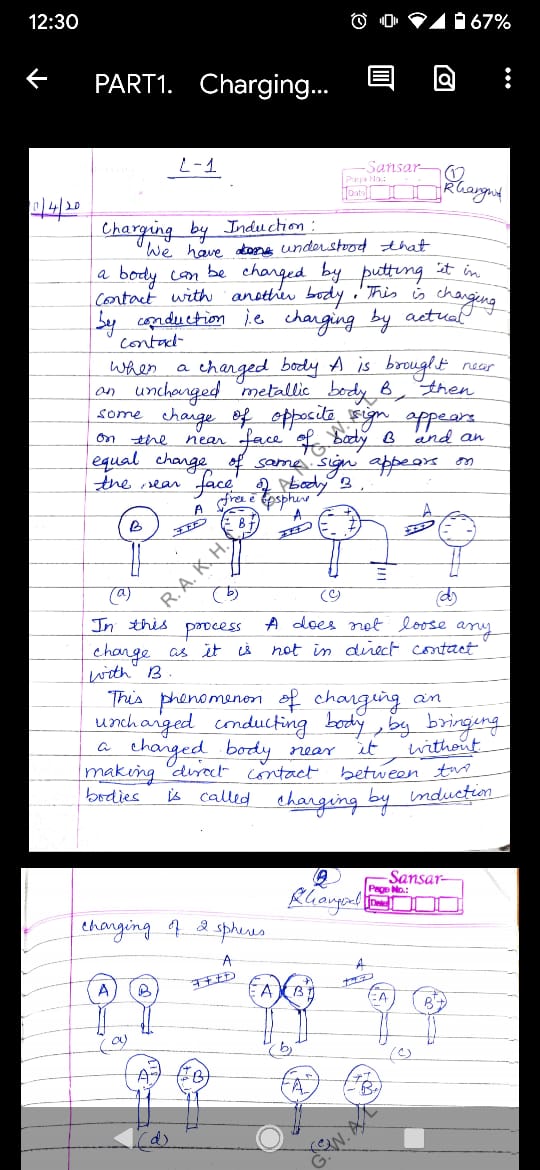 12:30
67%
PART1. Charging...
L-1
Sansar
Page No.:
Date
1
/4/20
Charging by Induction :
We have understood that
a body can be charged by putting it in
contact with another body. This is charging
by conduction i.e charging by actual
contact
When a charged body A is brought near
an uncharged metallic body B, then
some charge of opposite sign appears
on the near face of body B and an
equal charge of same sign appears on
the rear face of body B.
free e
A
A
A
B
B
(a)
(b)
(c)
(d)
R.A.K.H.
A.N.G.W.A.L
In this process A does not loose any
charge as it is not in direct contact
with B.
This phenomenon of charging an
uncharged conducting body, by bringing
a charged body near it, without
making direct contact between two
bodies is called charging by induction
2
Sansar
Page No.:
Date
charging of 2 spheres
A
A
A B
A B
A B
(a)
(b)
(c)
A B
A B
(d)
(e)
G.W.A.L